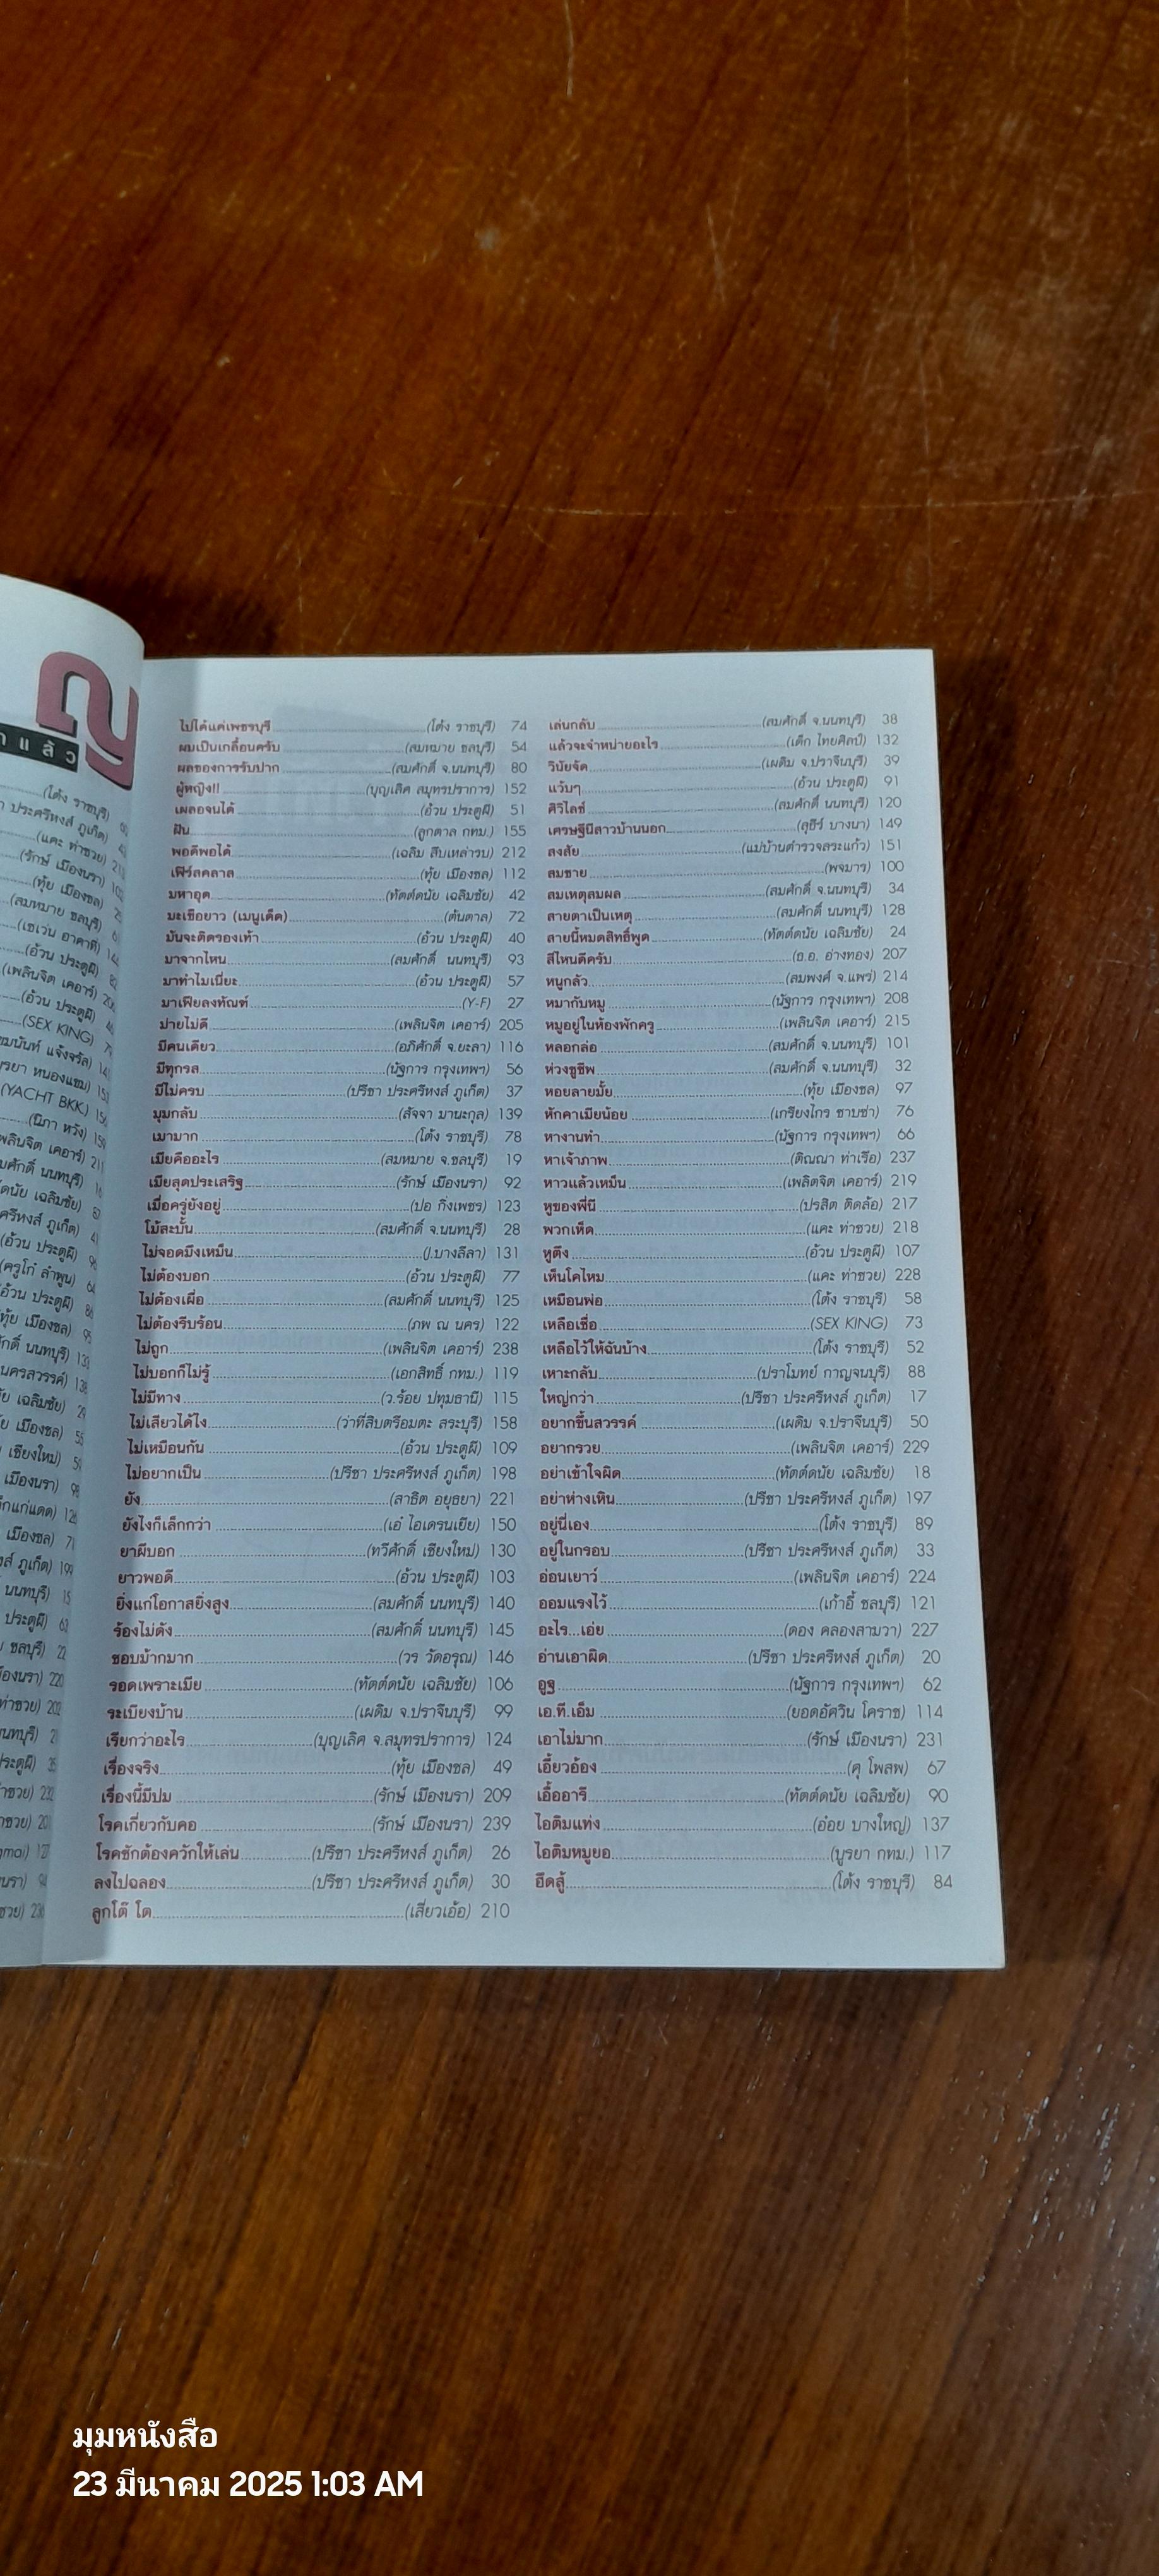 ญ
กแล้ว
(โต้ง ราชบุรี)
ประศรีหงส์ ภูเก็ต)
(แคะ ท่าชวย)
(รักษ์ เมืองนรา)
(ทุ้ย เมืองชล)
(สมหมาย ชลบุรี)
(เชเว่น อาคาติ)
(อ้วน ประตูผี)
(เพลินจิต เคอาร์)
(อ้วน ประตูผี)
(SEX KING)
หนองแขม)
(YACHT BKK.)
(นิภา หวัง)
เพลินจิต เคอาร์)
นนทบุรี)
เฉลิมชัย)
ภูเก็ต)
(อ้วน ประตูผี)
(ครูโก๋ ลำพูน)
อ้วน ประตูผี)
ทุ้ย เมืองชล)
นนทบุรี)
นครสวรรค์)
เฉลิมชัย)
เมืองชล)
เชียงใหม่)
เมืองนรา)
เมืองชล)
ภูเก็ต)
นนทบุรี)
ประตูผี)
ชลบุรี)
ไปได้แค่เพชรบุรี (โต้ง ราชบุรี) 74
ผมเป็นเกลื้อนครับ (สมหมาย ชลบุรี) 54
ผลของการรับปาก (สมศักดิ์ จ.นนทบุรี) 80
ผู้หญิง!! (บุญเลิศ สมุทรปราการ) 152
เผลอจนได้ (อ้วน ประตูผี) 51
ฝัน (ลูกตาล กทม.) 155
พอดีพอได้ (เฉลิม สิบเหล่ารบ) 212
เฟิร์สคลาส (ทุ้ย เมืองชล) 112
มหาอุด (ทัตต์ดนัย เฉลิมชัย) 42
มะเขือยาว (เมนูเด็ด) (ต้นตาล) 72
มันจะติดรองเท้า (อ้วน ประตูผี) 40
มาจากไหน (สมศักดิ์ นนทบุรี) 93
มาทำไมเนี่ยะ (อ้วน ประตูผี) 57
มาเฟียลงทัณฑ์ (Y-F) 27
ม่ายไม่ดี (เพลินจิต เคอาร์) 205
มีคนเดียว (อภิศักดิ์ จ.ยะลา) 116
มีทุกรส (นัฐการ กรุงเทพฯ) 56
มีไม่ครบ (ปรีชา ประศรีหงส์ ภูเก็ต) 37
มุมกลับ (สัจจา มานะกุล) 139
เมามาก (โต้ง ราชบุรี) 78
เมียคืออะไร (สมหมาย จ.ชลบุรี) 19
เมียสุดประเสริฐ (รักษ์ เมืองนรา) 92
เมื่อครู่ยังอยู่ (ปอ กิ่งเพชร) 123
โม้สะบั้น (สมศักดิ์ จ.นนทบุรี) 28
ไม่จอดมึงเหม็น (ป.บางลีลา) 131
ไม่ต้องบอก (อ้วน ประตูผี) 77
ไม่ต้องเผื่อ (สมศักดิ์ นนทบุรี) 125
ไม่ต้องรีบร้อน (ภพ ณ นคร) 122
ไม่ถูก (เพลินจิต เคอาร์) 238
ไม่บอกก็ไม่รู้ (เอกสิทธิ์ กทม.) 119
ไม่มีทาง (ว.ร้อย ปทุมธานี) 115
ไม่เสียวได้ไง (ว่าที่สิบตรีอมตะ สระบุรี) 158
ไม่เหมือนกัน (อ้วน ประตูผี) 109
ไม่อยากเป็น (ปรีชา ประศรีหงส์ ภูเก็ต) 198
ยัง (สาธิต อยุธยา) 221
ยังไงก็เล็กกว่า (เอ๋ ไอเดรนเยีย) 150
ยาผีบอก (ทวีศักดิ์ เชียงใหม่) 130
ยาวพอดี (อ้วน ประตูผี) 103
ยิ่งแก่โอกาสยิ่งสูง (สมศักดิ์ นนทบุรี) 140
ร้องไม่ดัง (สมศักดิ์ นนทบุรี) 145
ชอบม้ากมาก (วร วัดอรุณ) 146
รอดเพราะเมีย (ทัตต์ดนัย เฉลิมชัย) 106
ระเบียงบ้าน (เผดิม จ.ปราจีนบุรี) 99
เรียกว่าอะไร (บุญเลิศ จ.สมุทรปราการ) 124
เรื่องจริง (ทุ้ย เมืองชล) 49
เรื่องนี้มีปม (รักษ์ เมืองนรา) 209
โรคเกี่ยวกับคอ (รักษ์ เมืองนรา) 239
โรคชักต้องควักให้เล่น (ปรีชา ประศรีหงส์ ภูเก็ต) 26
ลงไปฉลอง (ปรีชา ประศรีหงส์ ภูเก็ต) 30
ลูกโต๊ โต (เสี่ยวเอ้อ) 210
เล่นกลับ (สมศักดิ์ จ.นนทบุรี) 38
แล้วจะจำหน่ายอะไร (เด็ก ไทยศิลป์) 132
วินัยจัด (เผดิม จ.ปราจีนบุรี) 39
แว้บๆ (อ้วน ประตูผี) 91
ศิวิไลซ์ (สมศักดิ์ นนทบุรี) 120
เศรษฐีนีสาวบ้านนอก (สุธีร์ บางนา) 149
สงสัย (แม่บ้านตำรวจสระแก้ว) 151
สมชาย (พจมาร) 100
สมเหตุสมผล (สมศักดิ์ จ.นนทบุรี) 34
สายตาเป็นเหตุ (สมศักดิ์ นนทบุรี) 128
สายนี้หมดสิทธิ์พูด (ทัตต์ดนัย เฉลิมชัย) 24
สีไหนดีครับ (ธ.อ. อ่างทอง) 207
หนูกลัว (สมพงศ์ จ.แพร่) 214
หมากับหมู (นัฐการ กรุงเทพฯ) 208
หมูอยู่ในห้องพักครู (เพลินจิต เคอาร์) 215
หลอกล่อ (สมศักดิ์ จ.นนทบุรี) 101
ห่วงชูชีพ (สมศักดิ์ จ.นนทบุรี) 32
หอยลายมั้ย (ทุ้ย เมืองชล) 97
หักคาเมียน้อย (เกรียงไกร ซาบซ่า) 76
หางานทำ (นัฐการ กรุงเทพฯ) 66
หาเจ้าภาพ (ติณณา ท่าเรือ) 237
หาวแล้วเหม็น (เพลิตจิต เคอาร์) 219
หูของพี่นี (ปรสิต ติดล้อ) 217
พวกเห็ด (แคะ ท่าชวย) 218
หูตึง (อ้วน ประตูผี) 107
เห็นโคไหม (แคะ ท่าชวย) 228
เหมือนพ่อ (โต้ง ราชบุรี) 58
เหลือเชื่อ (SEX KING) 73
เหลือไว้ให้ฉันบ้าง (โต้ง ราชบุรี) 52
เหาะกลับ (ปราโมทย์ กาญจนบุรี) 88
ใหญ่กว่า (ปรีชา ประศรีหงส์ ภูเก็ต) 17
อยากขึ้นสวรรค์ (เผดิม จ.ปราจีนบุรี) 50
อยากรวย (เพลินจิต เคอาร์) 229
อย่าเข้าใจผิด (ทัตต์ดนัย เฉลิมชัย) 18
อย่าห่างเหิน (ปรีชา ประศรีหงส์ ภูเก็ต) 197
อยู่นี่เอง (โต้ง ราชบุรี) 89
อยู่ในกรอบ (ปรีชา ประศรีหงส์ ภูเก็ต) 33
อ่อนเยาว์ (เพลินจิต เคอาร์) 224
ออมแรงไว้ (เก้าอี้ ชลบุรี) 121
อะไร...เอ่ย (ดอง คลองสามวา) 227
อ่านเอาผิด (ปรีชา ประศรีหงส์ ภูเก็ต) 20
อูฐ (นัฐการ กรุงเทพฯ) 62
เอ.ที.เอ็ม (ยอดอัศวิน โคราช) 114
เอาไม่มาก (รักษ์ เมืองนรา) 231
เอี้ยวอ้อง (ศุ โพสพ) 67
เอื้ออารี (ทัตต์ดนัย เฉลิมชัย) 90
ไอติมแท่ง (อ๋อย บางใหญ่) 137
ไอติมหมูยอ (นูรยา กทม.) 117
ฮึดสู้ (โต้ง ราชบุรี) 84
มุมหนังสือ
23 มีนาคม 2025 1:03 AM